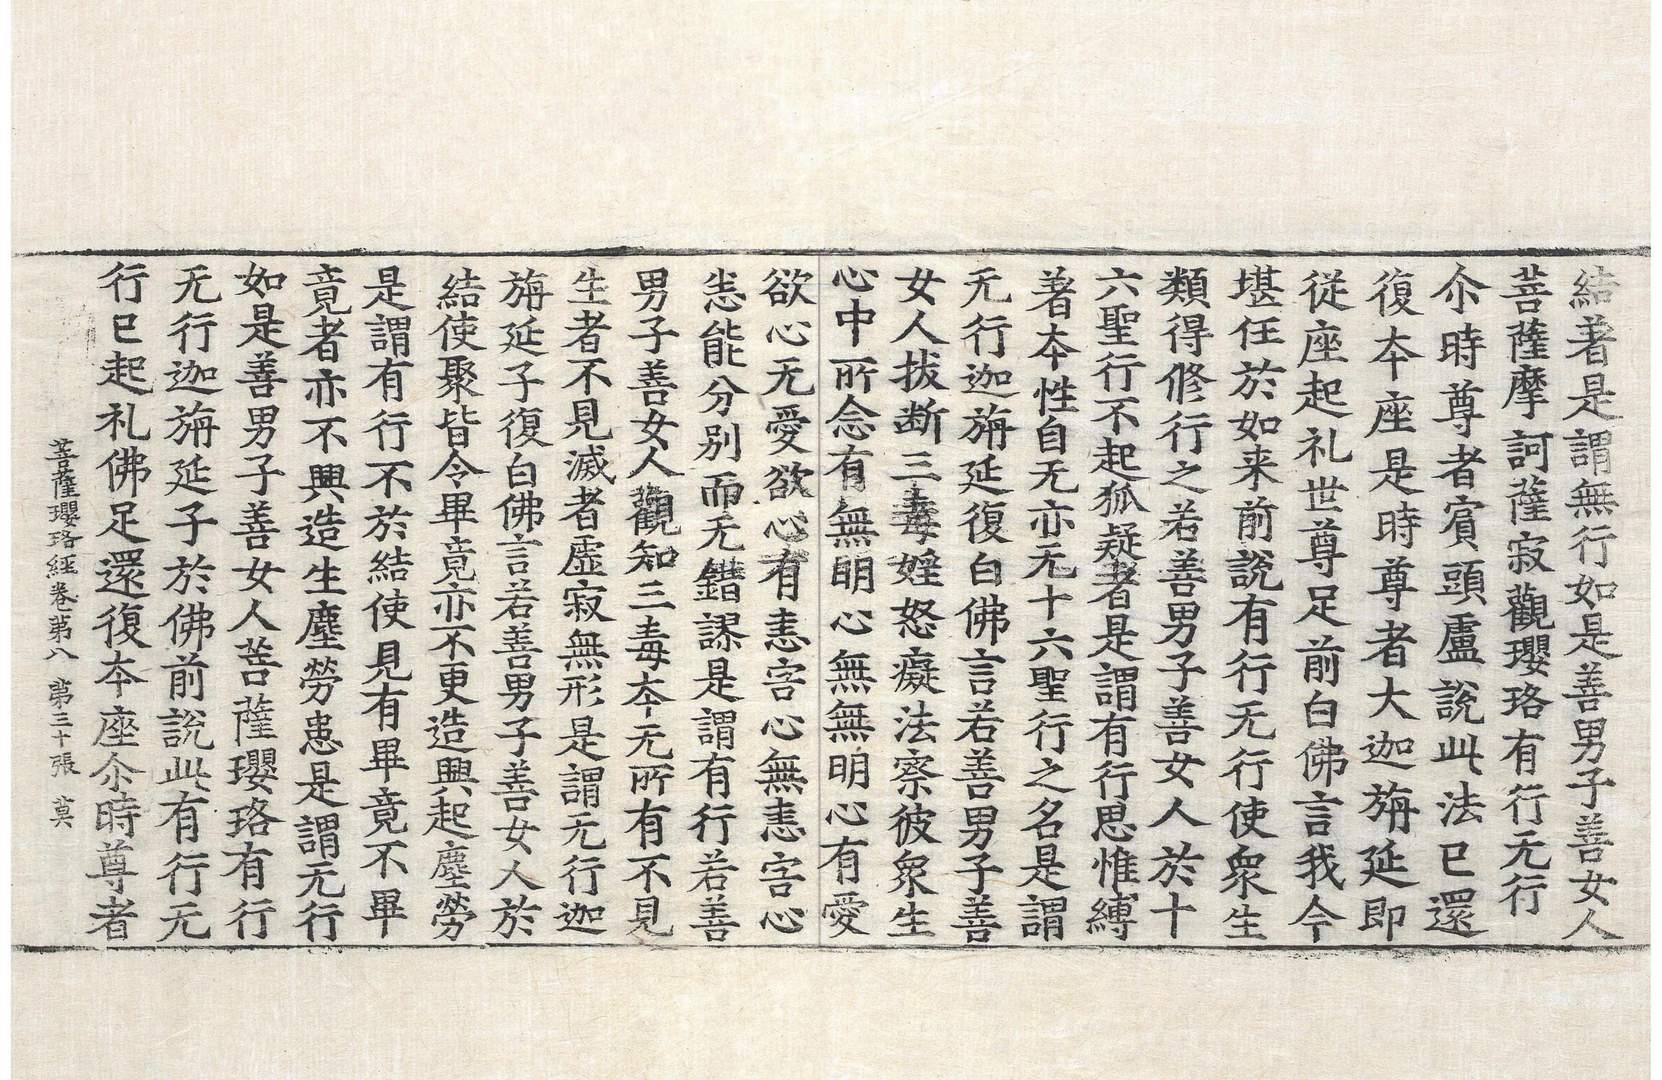 結著是謂無行如是善男子善女人
菩薩摩訶薩寂觀瓔珞有行无行
尒時尊者賓頭盧說此法已還
復夲座是時尊者大迦旃延即
從座起礼世尊足前白佛言我今
堪任於如来前說有行无行使衆生
類得修行之若善男子善女人於十
六聖行不起狐疑者是謂有行思惟縛
著夲性自无亦无十六聖行之名是謂
无行迦旃延復白佛言若善男子善
女人拔斷三毒婬怒癡法察彼衆生
心中所念有無明心無無明心有愛
欲心无愛欲心有恚害心無恚害心
悉能分別而无錯謬是謂有行若善
男子善女人觀知三毒夲无所有不見
生者不見滅者虛寂無形是謂无行迦
旃延子復白佛言若善男子善女人於
結使聚皆令畢竟亦不更造興起塵勞
是謂有行不於結使見有畢竟不畢
竟者亦不興造生塵勞患是謂无行
如是善男子善女人菩薩瓔珞有行
无行迦旃延子於佛前說此有行无
行已起礼佛足還復夲座尒時尊者
菩薩瓔珞經卷第八 第三十張 莫